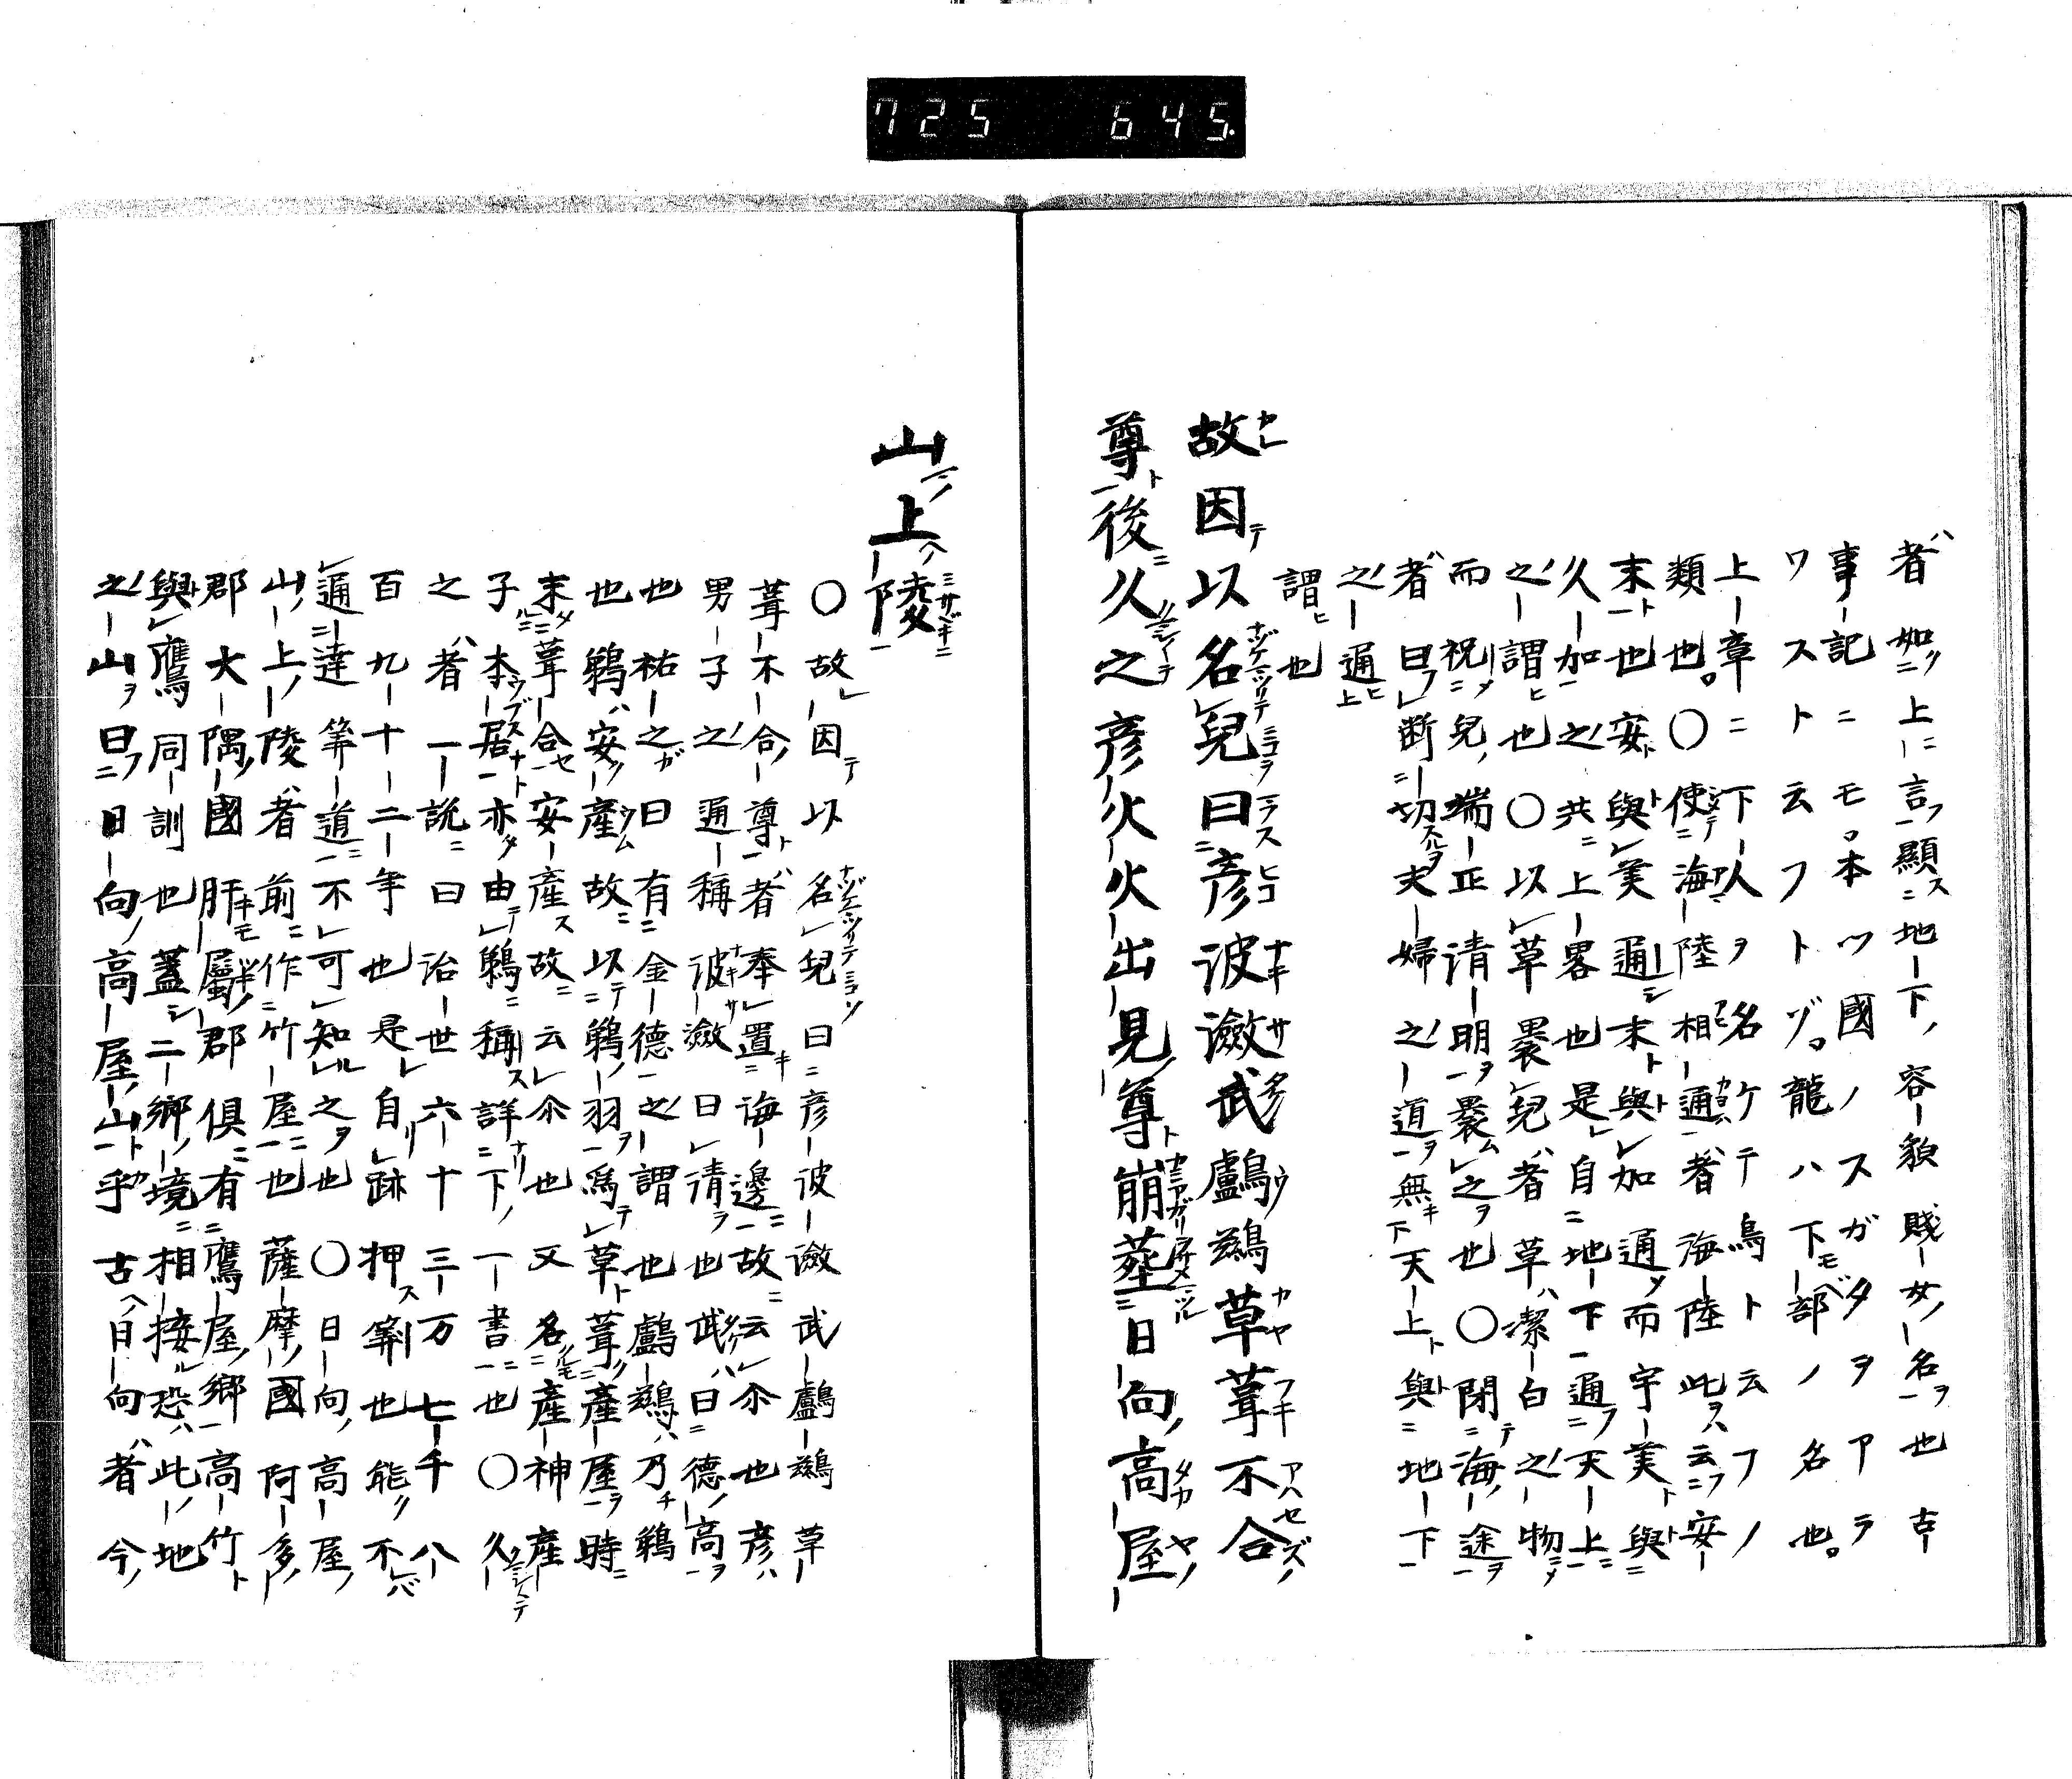 725 645.
者如上言顯地下容貌賤女名也古
事記ニモ本ツ國ノスガタヲアラ
ワストト云フトゾ。龍ハ下部ノ名也。
上章ニ下人ヲ名ケテ鳥ト云フノ
類也。〇使海陸相通者海陸此云安
末也安與美通末與加通而宇美與
久加之共上畧也是自地下通天上
之謂也〇以草褁兒者草潔白之物
而祝兒端正清明褁之也〇閉海途
者曰断切夫婦之道無天上與地下
之通
謂也
故因以名兒曰彥波瀲武鸕鶿草葺不合
尊後久之彥火火出見尊崩葬日向高屋
山上陵
〇故因以名兒曰彥波瀲武鸕鶿草
葺不合尊者奉置海邊故云尒也彥
男子之通稱波瀲曰清也武曰德高
也祐之曰有金德之謂也鸕鶿乃鵜
也鵜安產故以鵜羽爲草葺產屋時
末葺合安產故云尒也又名產神產
子本居亦由鵜稱詳下一書也〇久
之者一說曰治世六十三万七千八
百九十二年也是自跡押筭也能不
通達筭道不可知之也〇日向高屋
山上陵者前作竹屋也薩摩國阿多
郡大隅國肝屬郡俱有鷹屋鄉高竹
與鷹同訓也蓋二鄉境相接恐此地
之山曰日向高屋山乎古日向者今